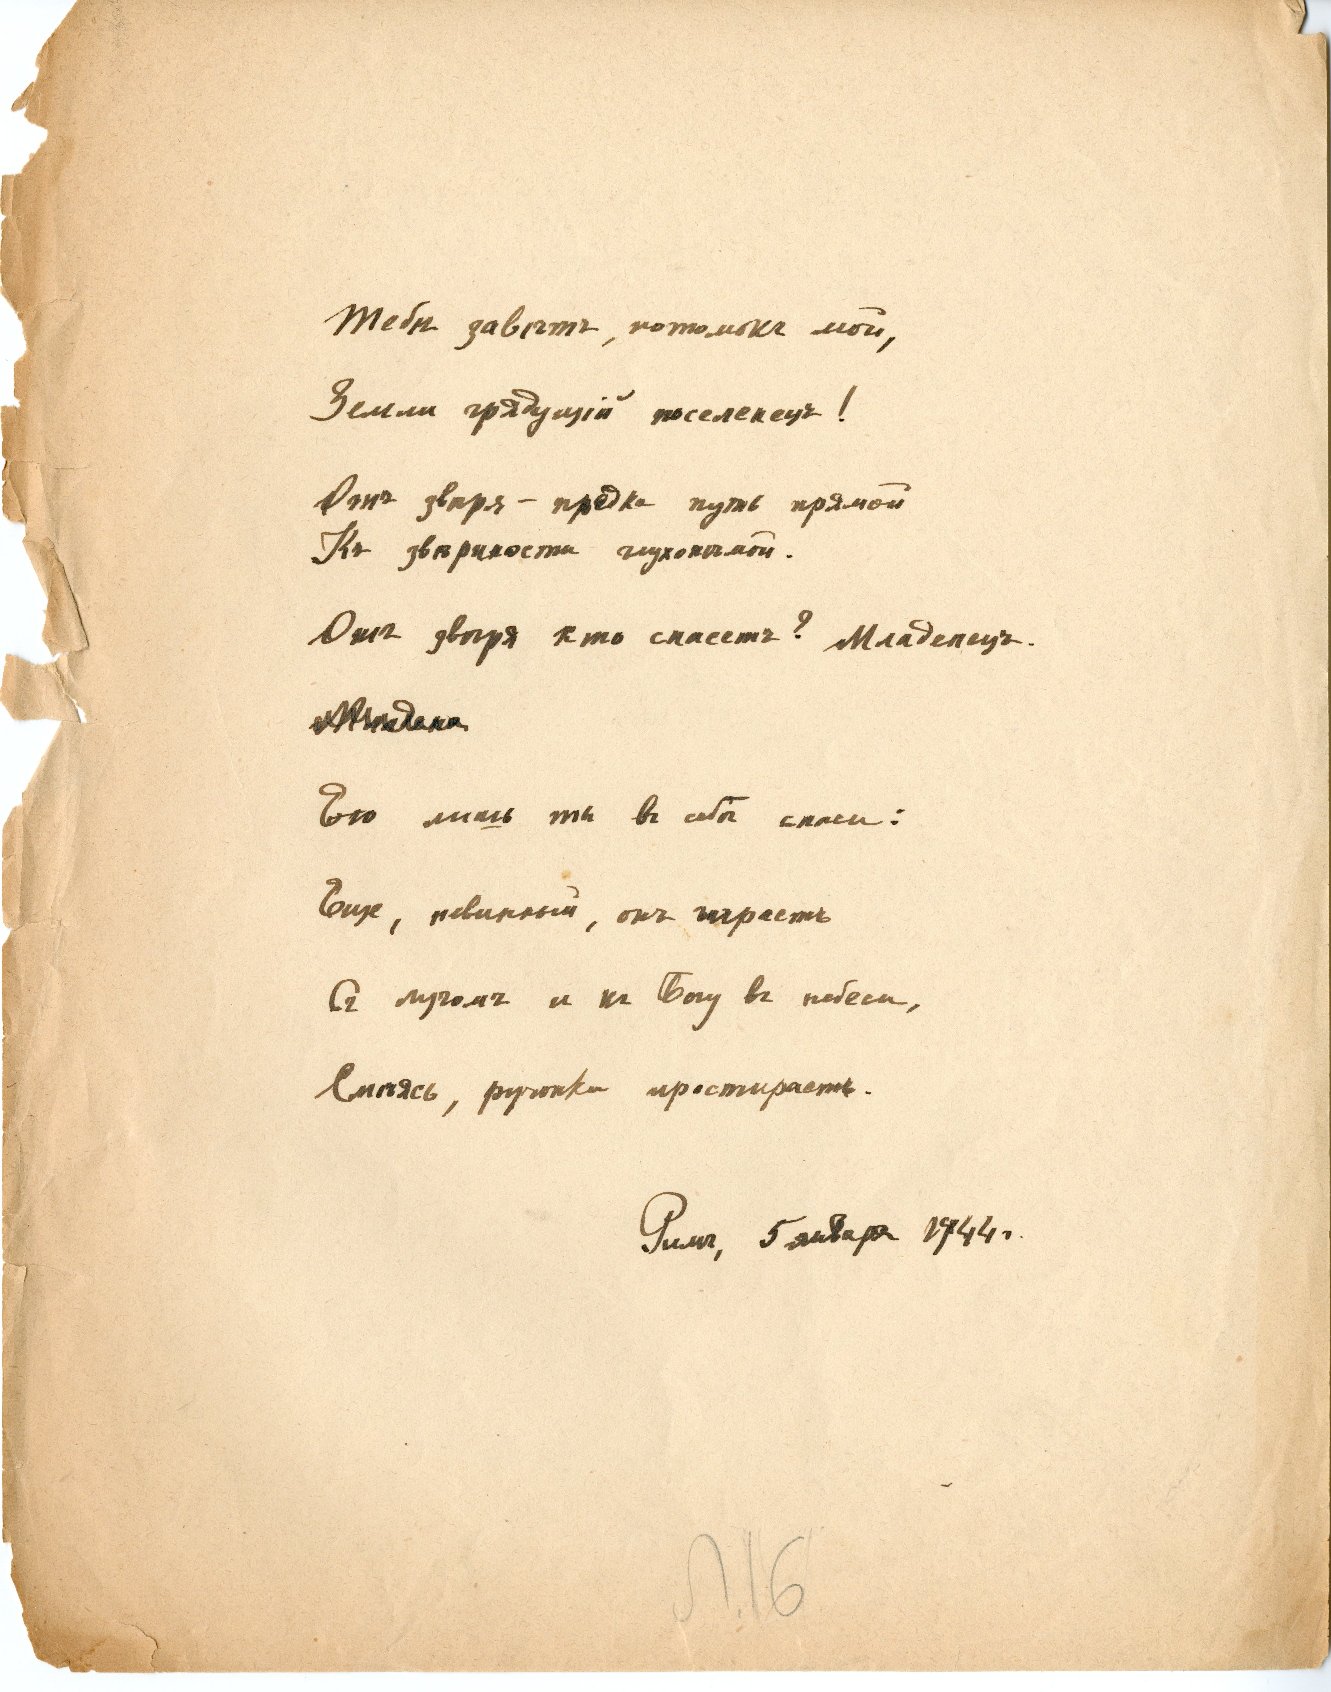 Тебѣ завѣтъ, потомокъ мой,
Земли грядущій поселенецъ!
Отъ звѣря - предка путь прямой
Къ звѣриности глухонѣмой.
Отъ звѣря кто спасетъ? Младенецъ.
Его лишь ты въ себѣ спаси:
Еще, невинный, онъ играетъ
Съ лучомъ и къ Богу въ небеси,
Смѣясь, ручонки простираетъ.
Римъ, 5 января 1944 г.
Л.16